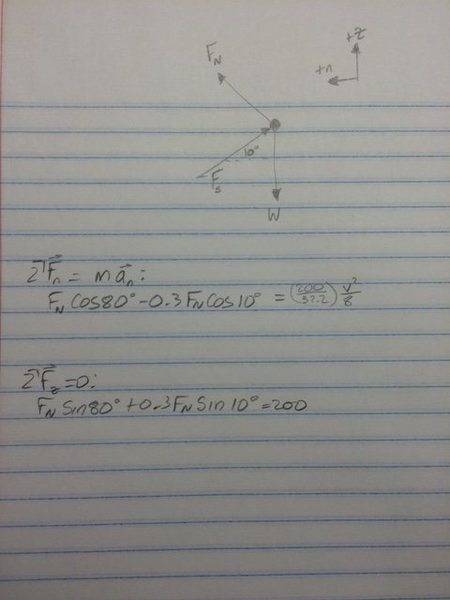 +z
F_N
+n
10°
F_s
W
ΣF⃗_n = ma⃗_n:
F_N Cos80° - 0.3F_N Cos10° = (200/32.2) v²/8
ΣF⃗_z = 0:
F_N Sin80° + 0.3F_N Sin10° = 200